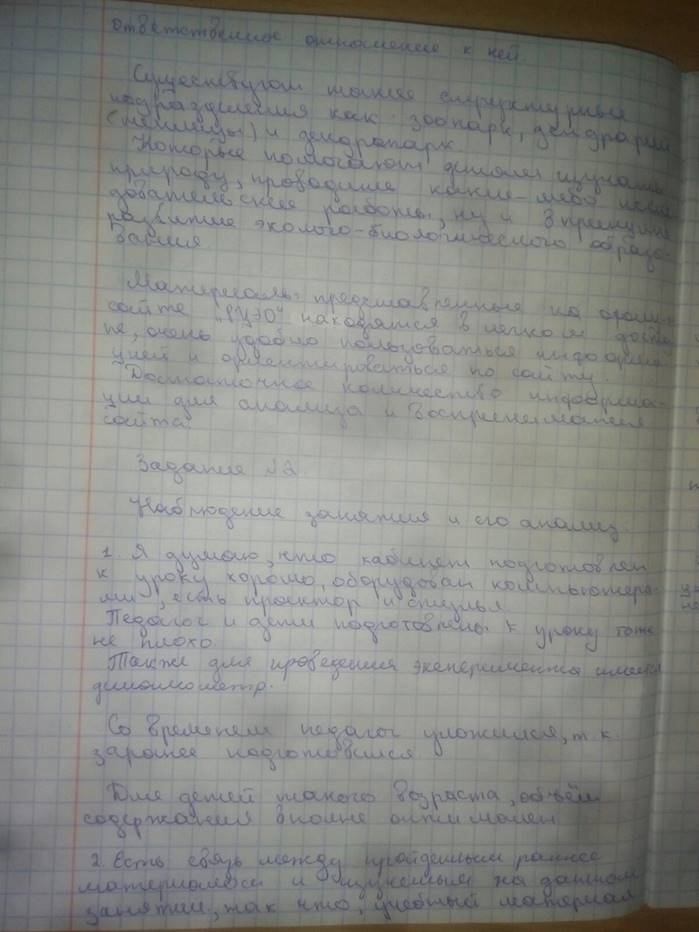 ответственное отношение к ней.
Существуют также структурные
подразделения как: зоопарк, дендрарий
(теплицы) и дендропарк
Которые помогают детям изучать
природу, проводить какие-либо иссле
довательские работы, ну и в принципе
развитие эколого-биологического образо-
вания
Материалы представленные на
сайте находятся в легком досту
пе, очень удобно пользоваться информа
цией и ориентироваться по сайту.
Достаточное количество информа-
ции для анализа и воспринимания
сайта.
Задание №2
Наблюдение занятия и его анализ.
1. Я думаю, что кабинет подготовлен
к уроку хорошо, оборудован компьютера-
ми, есть проектор и стулья
Педагог и дети подготовлены к уроку тоже
не плохо.
Также для проведения эксперимента имелся
динамометр.
Со временем педагог уложился, т.к.
заранее подготовился
Для детей такого возраста, объём
содержания вполне оптимален
2. Есть связь между пройденным раннее
материалом и изученным на данном
занятии, так что, учебный материал